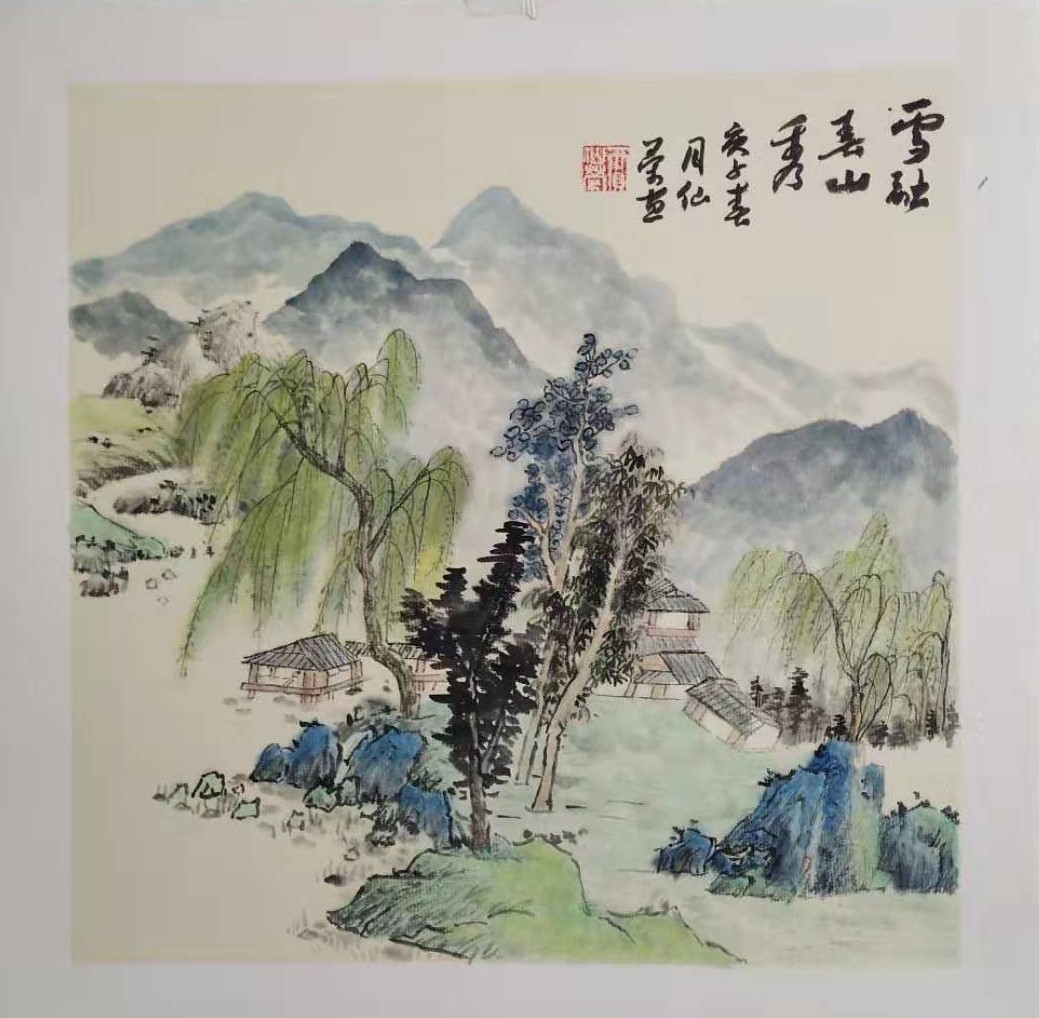 雪融
春山
秀
庚子春
月仙
荣画